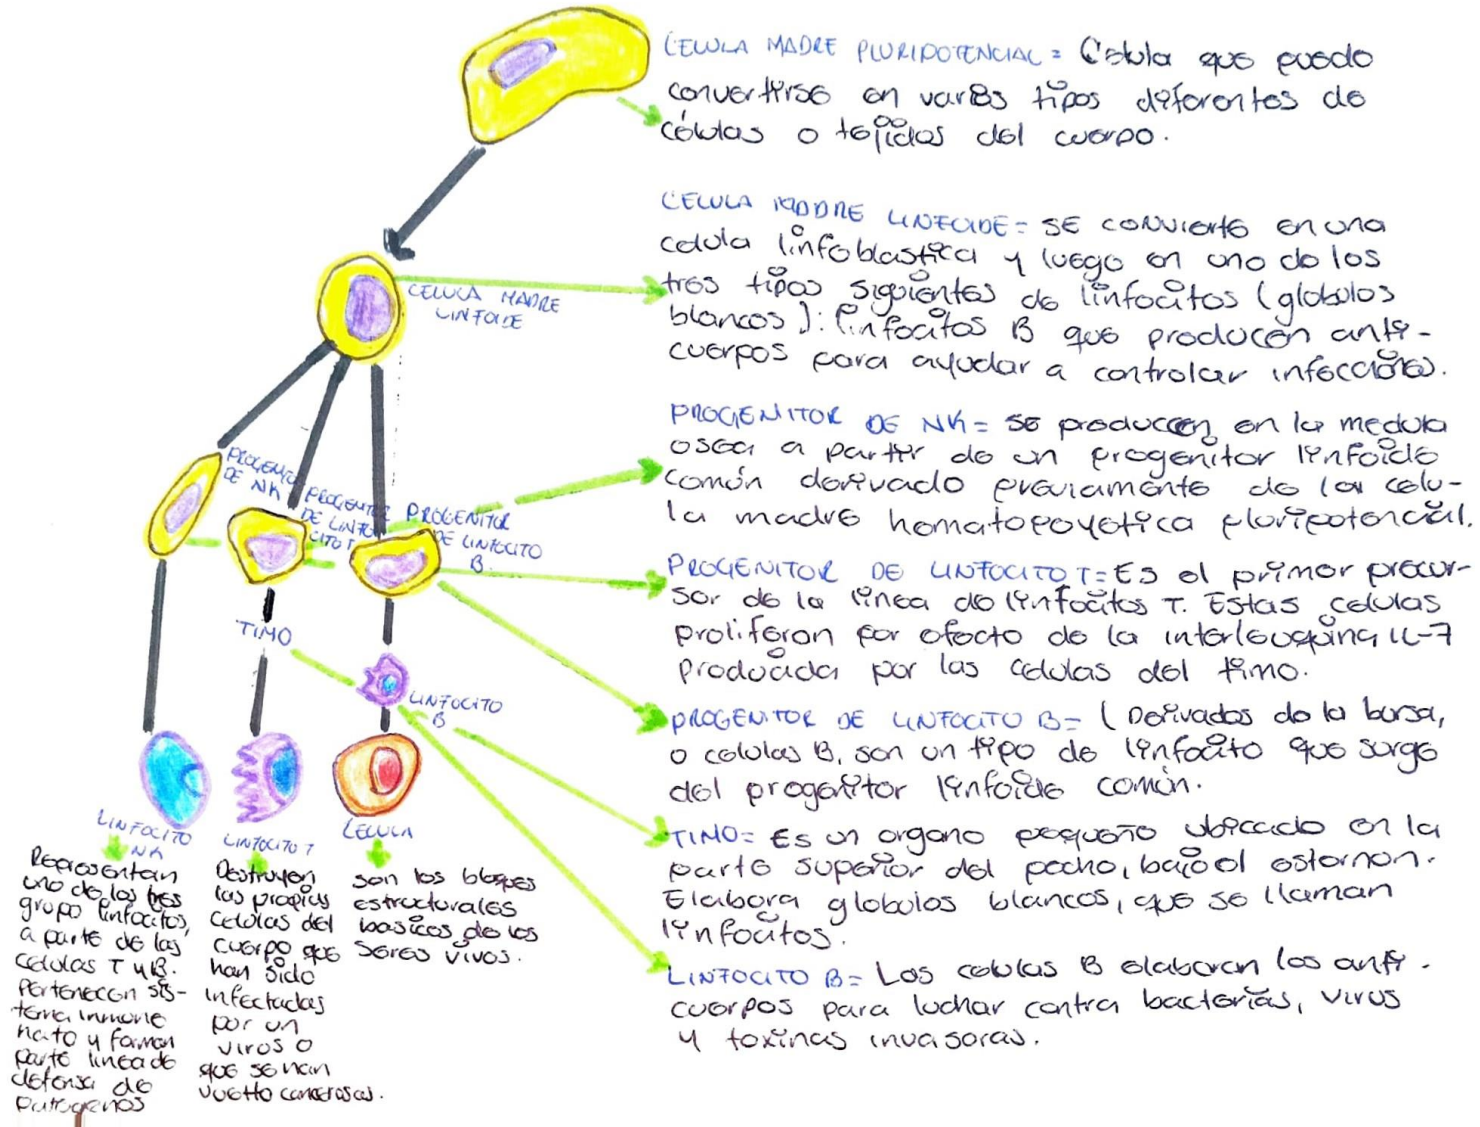 CELULA MADRE PLURIPOTENCIAL = Celula que puede
convertirse en varios tipos diferentes de
células o tejidos del cuerpo.
CELULA MADRE LINFOIDE = SE convierte en una
celula linfoblastica y luego en uno de los
tres tipos siguientes de linfocitos (globulos
blancos): linfocitos B que producen anti-
cuerpos para ayudar a controlar infecciones.
CELULA MADRE
LINFOIDE
PROGENITOR DE NK = se producen en la medula
osea a partir de un progenitor linfoide
común derivado previamente de la celu-
la madre hematopoyetica pluripotencial.
PROGENITOR
DE NK
PROGENITOR
DE LINFO
CITO T
PROGENITOR
DE LINFOCITO
B.
PROGENITOR DE LINFOCITO T = Es el primer precur-
sor de la linea de linfocitos T. Estas celulas
proliferan por efecto de la interleuquina IL-7
producida por las celulas del timo.
TIMO
LINFOCITO
B
PROGENITOR DE LINFOCITO B = (Derivados de la bursa,
o celulas B, son un tipo de linfocito que surge
del progenitor linfoide común.
TIMO = Es un organo pequeño ubicado en la
parte superior del pecho, bajo el esternon.
Elabora globulos blancos, que se llaman
linfocitos.
LINFOCITO B = Las celulas B elaboran los anti-
cuerpos para luchar contra bacterias, virus
y toxinas invasoras.
LINFOCITO
NK
Representan
uno de los tres
grupo linfocitos,
a parte de las
celulas T y B.
Pertenecen sis-
tema inmune
nato y forman
parte linea de
defensa de
patogenos
LINFOCITO T
Destruyen
las propias
celulas del
cuerpo que
han sido
infectadas
por un
virus o
que se han
vuelto cancerosas.
CELULA
son los bloques
estructurales
basicos de los
seres vivos.